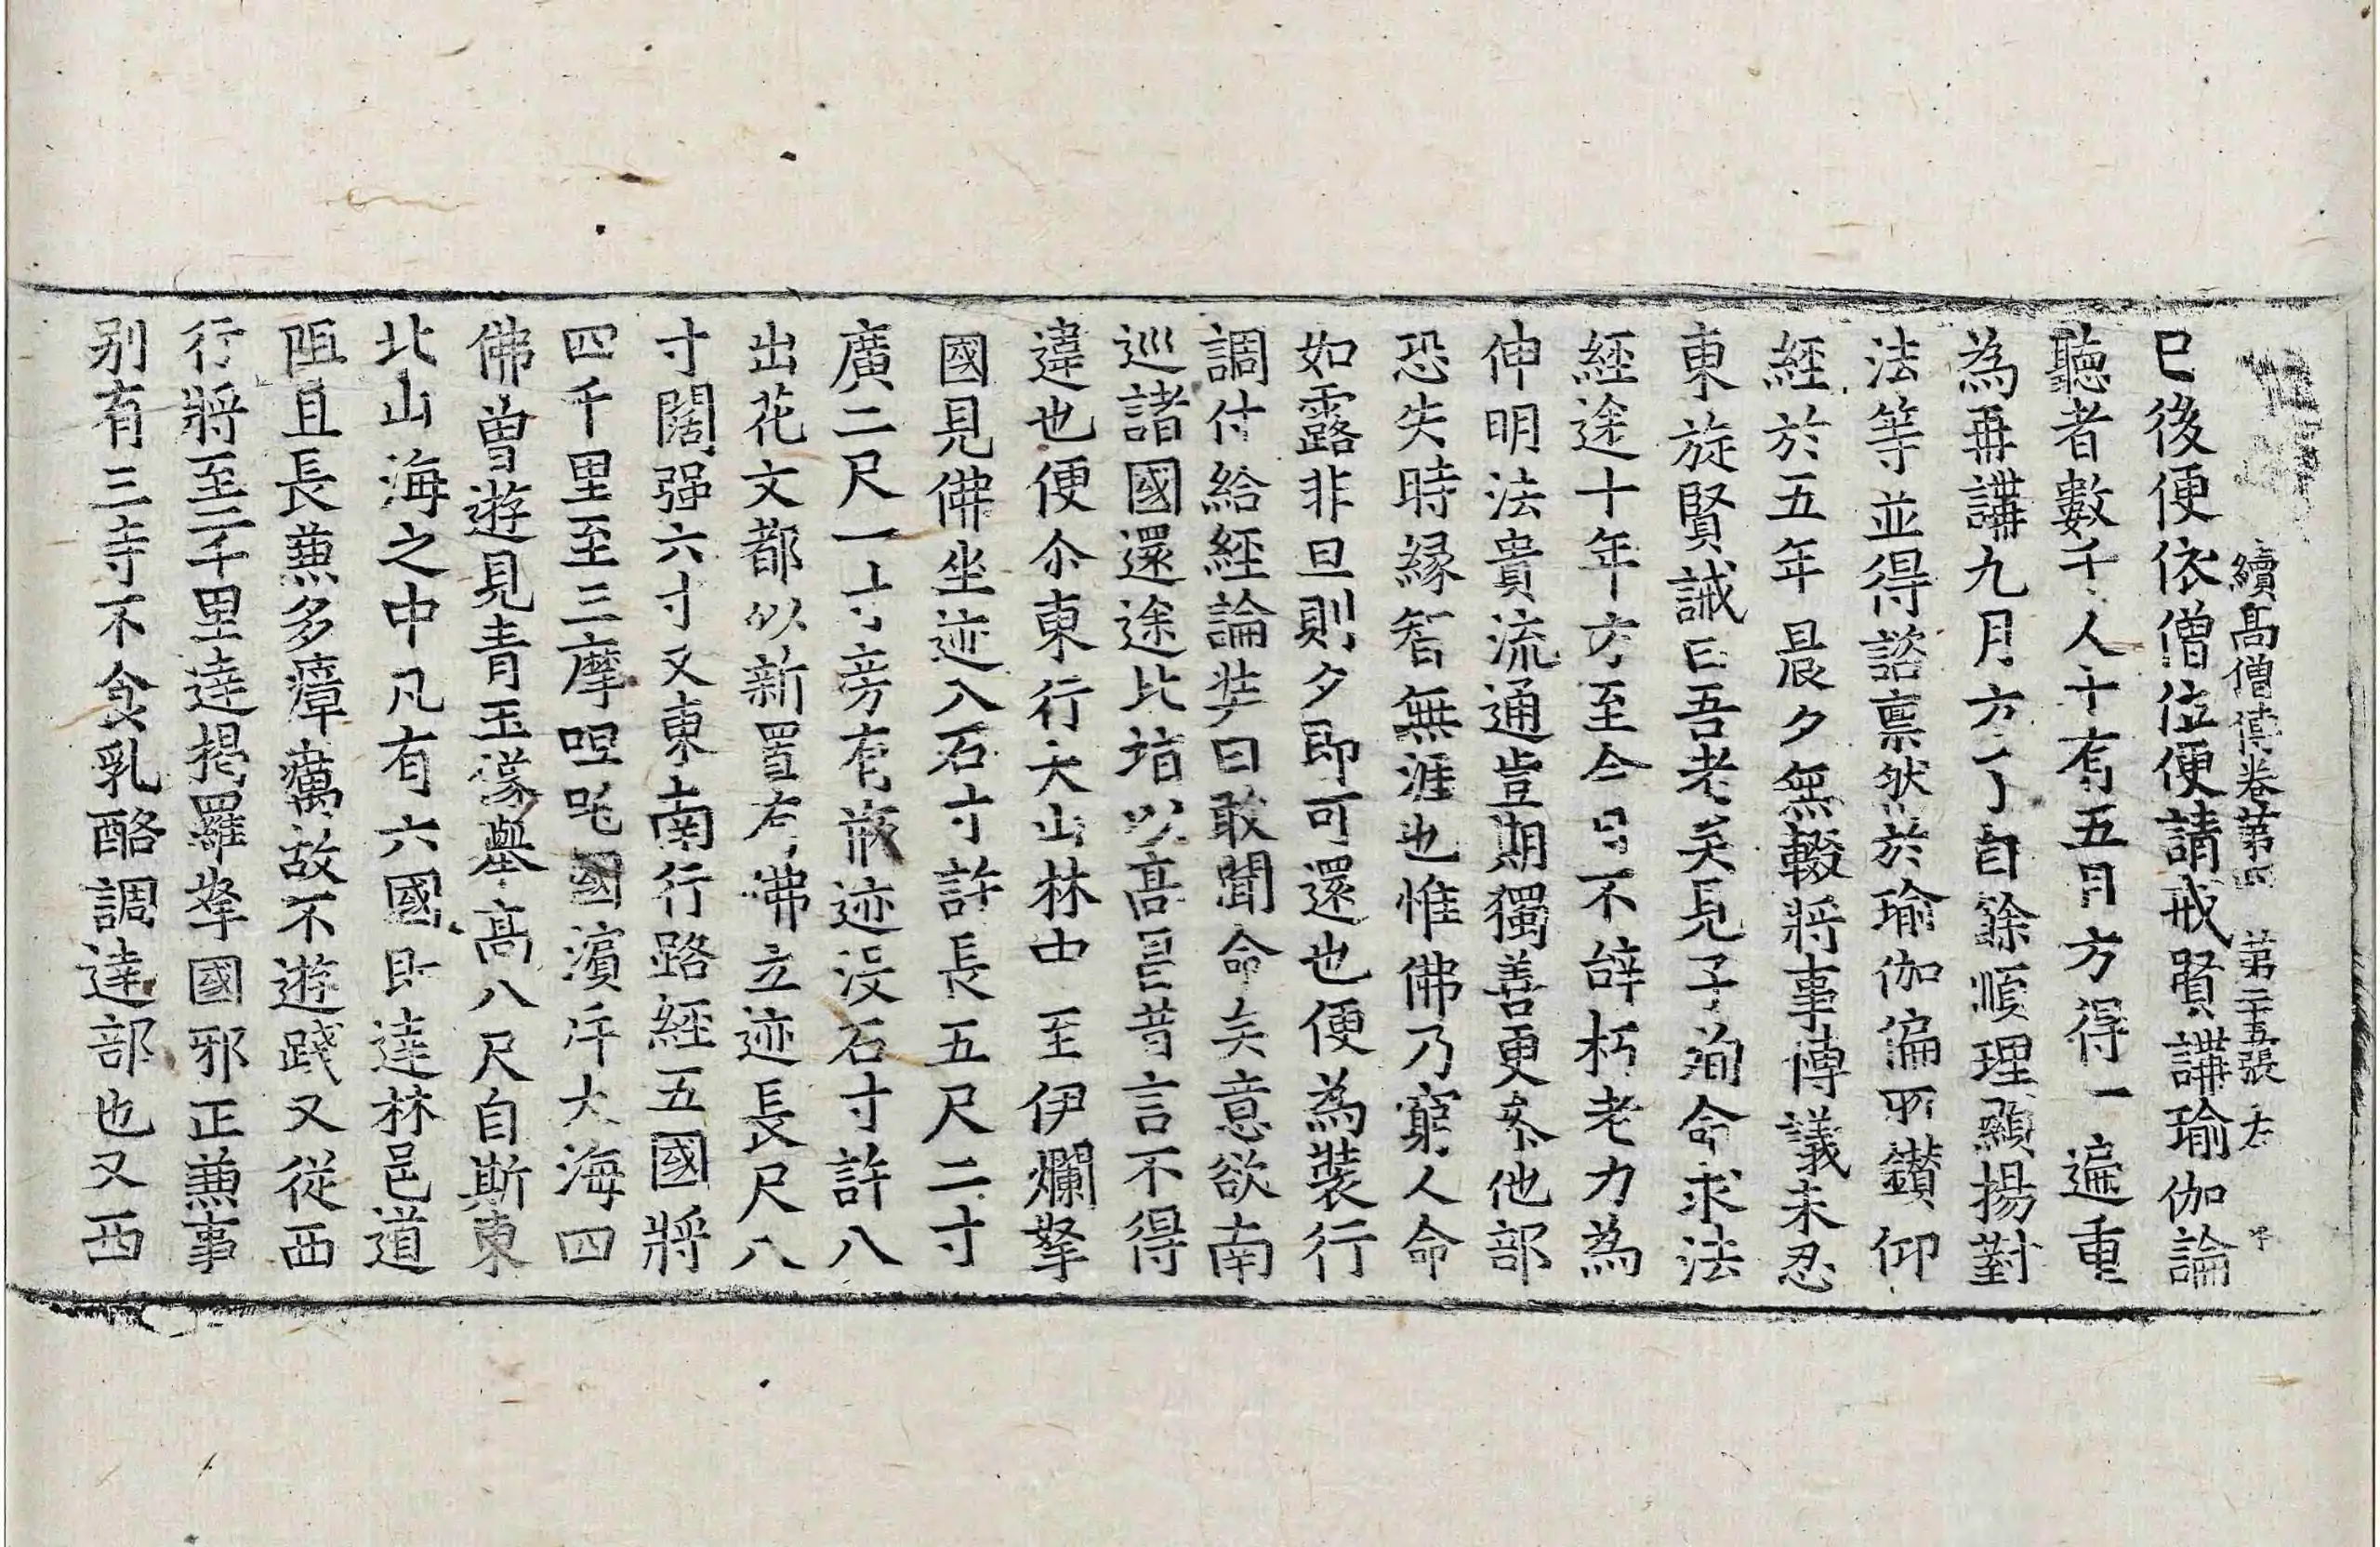 續高僧傳卷第四 第二十五張 左
已後便依僧位便請戒賢講瑜伽論
聽者數千人十有五月方得一遍重
為再講九月方了自餘順理顯揚對
法等並得諮稟然於瑜伽偏所鑚仰
經於五年晨夕無輟將事博議未忍
東旋賢誡曰吾老矣見子殉命求法
經途十年方至今日不辭朽老力為
伸明法貴流通豈期獨善更叅他部
恐失時縁智無涯也惟佛乃窮人命
如露非旦則夕即可還也便為裝行
調付給經論奘曰敢聞命矣意欲南
巡諸國還途北指以髙昌昔言不得
違也便尒東行大山林中至伊爛拏
國見佛坐迹入石寸許長五尺二寸
廣二尺一寸旁有瓶迹没石寸許八
出花文都似新置有佛立迹長尺八
寸闊强六寸又東南行路經五國將
四千里至三摩呾吒國濱斥大海四
佛曾遊見青玉像舉髙八尺自斯東
北山海之中凡有六國即達林邑道
阻且長蕪多瘴癘故不遊踐又從西
行將至二千里達揭羅拏國邪正蕪事
别有三寺不食乳酪調達部也又西